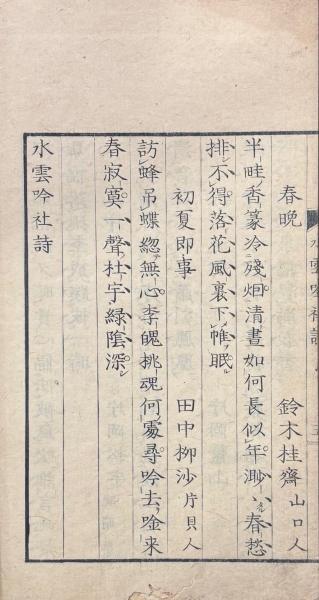 春晩　鈴木桂齋 山口人
半畦香篆冷殘烟清晝如何長似年渺〻春愁
排不得落花風裏下帷眠
初夏即事　田中柳沙 片貝人
訪蜂吊蝶緫無心李魄桃魂何處尋吟去唫来
春寂寞一聲杜宇緑陰深
水雲吟社詩